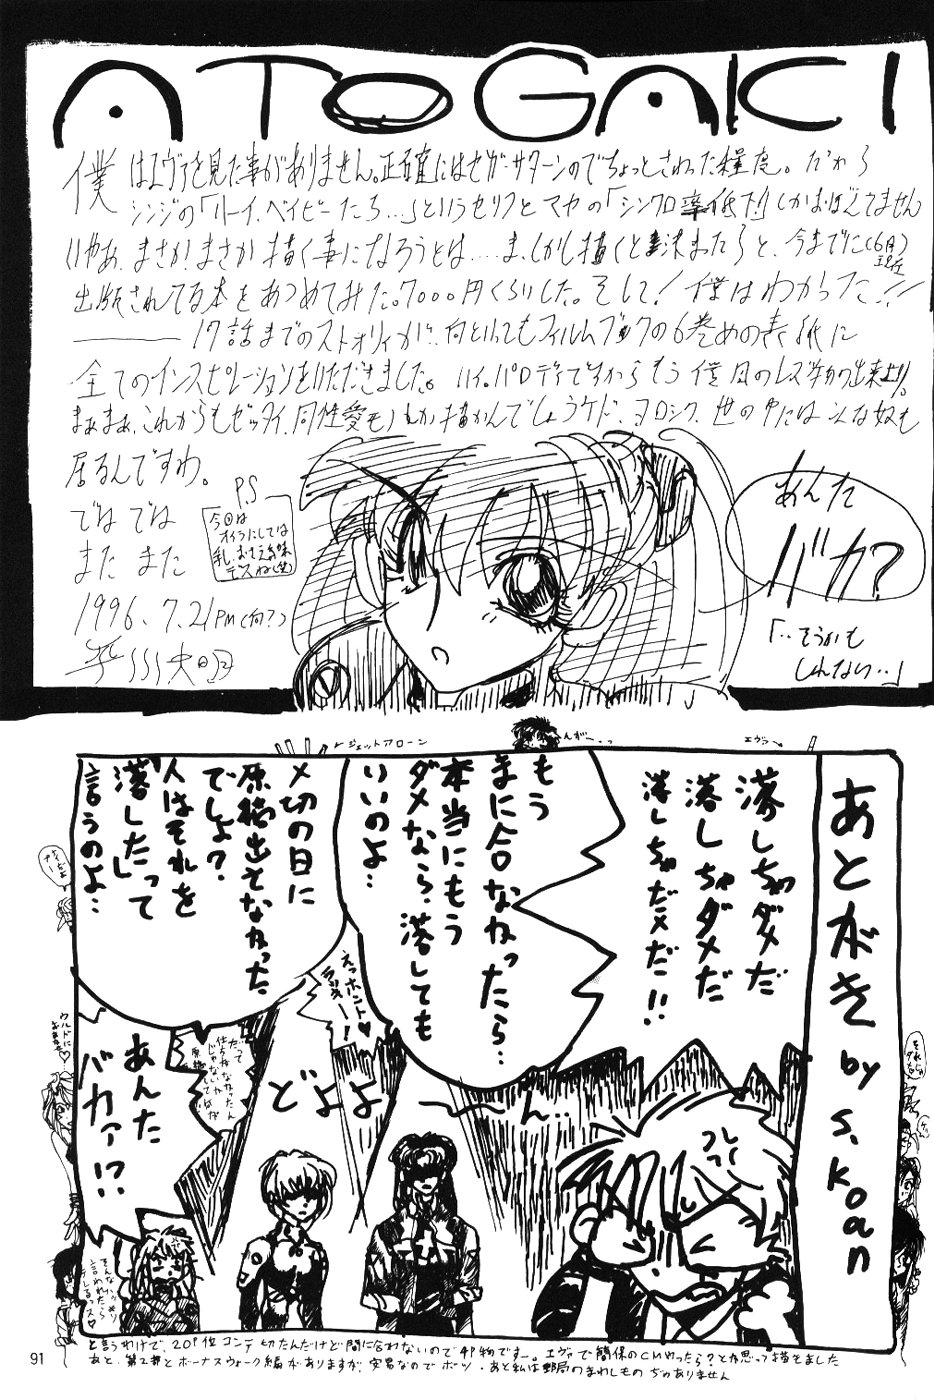 ATOGAKI
僕はエヴァを見た事がありません。正確にはセガ・サターンのでちょっとさわった程度。だから
シンジの「ハーイ、ベイビーたち…」というセリフとマヤの「シンクロ率低下!」しかおぼえてません
いやあ、まさか!まさか描く事になろうとは……ま、しかし描くと決まったらと、今までに(6月)現在
出版されてる本をあつめてみた。7000円くらいした。そして!僕はわかった!!
――17話までのストォリィガ!何といってもフィルムブックの6巻めの表紙に
全てのインスピレーションをいただきました。ハイ。パロディですからもう僕風のレズ物の出来上り。
まぁまぁ、これからもゼッタイ、同性愛モノしか描かんでしょうケド、ヨロシク、世の中にはこんな奴も
居るんですわ。
P.S
今回は
オイラにしては
乳おさえ気味
デスね(笑)
ではでは
また また
1996.7.21 PM(何?)
あんた
バカ?
「‥そうかも
しれない‥」
ジェットアローン
エヴァ
あとがき by S.Koan
落しちゃダメだ
落しちゃダメだ
落しちゃだメだ!!
もう
まに合なかったら…
本当にもう
ダメなら、落しても
いいのよ…
〆切の日に
原稿出せなかった
でしょ?
人はそれを
「落した」って
言うのよ…
えっホント♥
ラッキー!
どよよーん‥
あんた
バカァ!?
と言うわけで、20P位コンテ切たんだけど間に合わないので
あと、第2部とボーナスウォーク編がありますが、安易なのでボツ。あと私は郵局のまわしものぢゃありません
エヴァで簡保のCMやったら?とか思って描きました
91